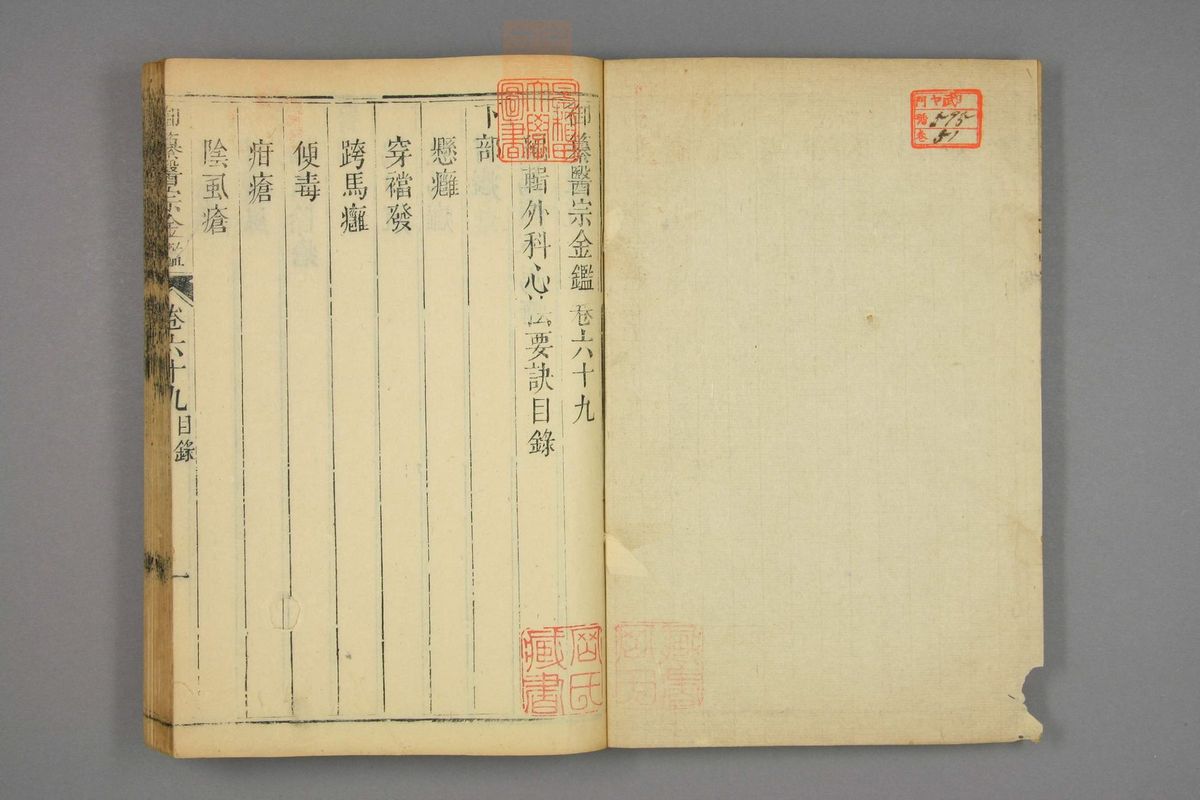 御纂醫宗金鑑卷六十九
編輯外科心法要訣目錄
下部
懸癰
穿襠發
跨馬癰
便毒
疳瘡
陰虱瘡
御纂醫宗金鑑 卷六十九 目錄 一
岡氏
藏書
圖書
575
51